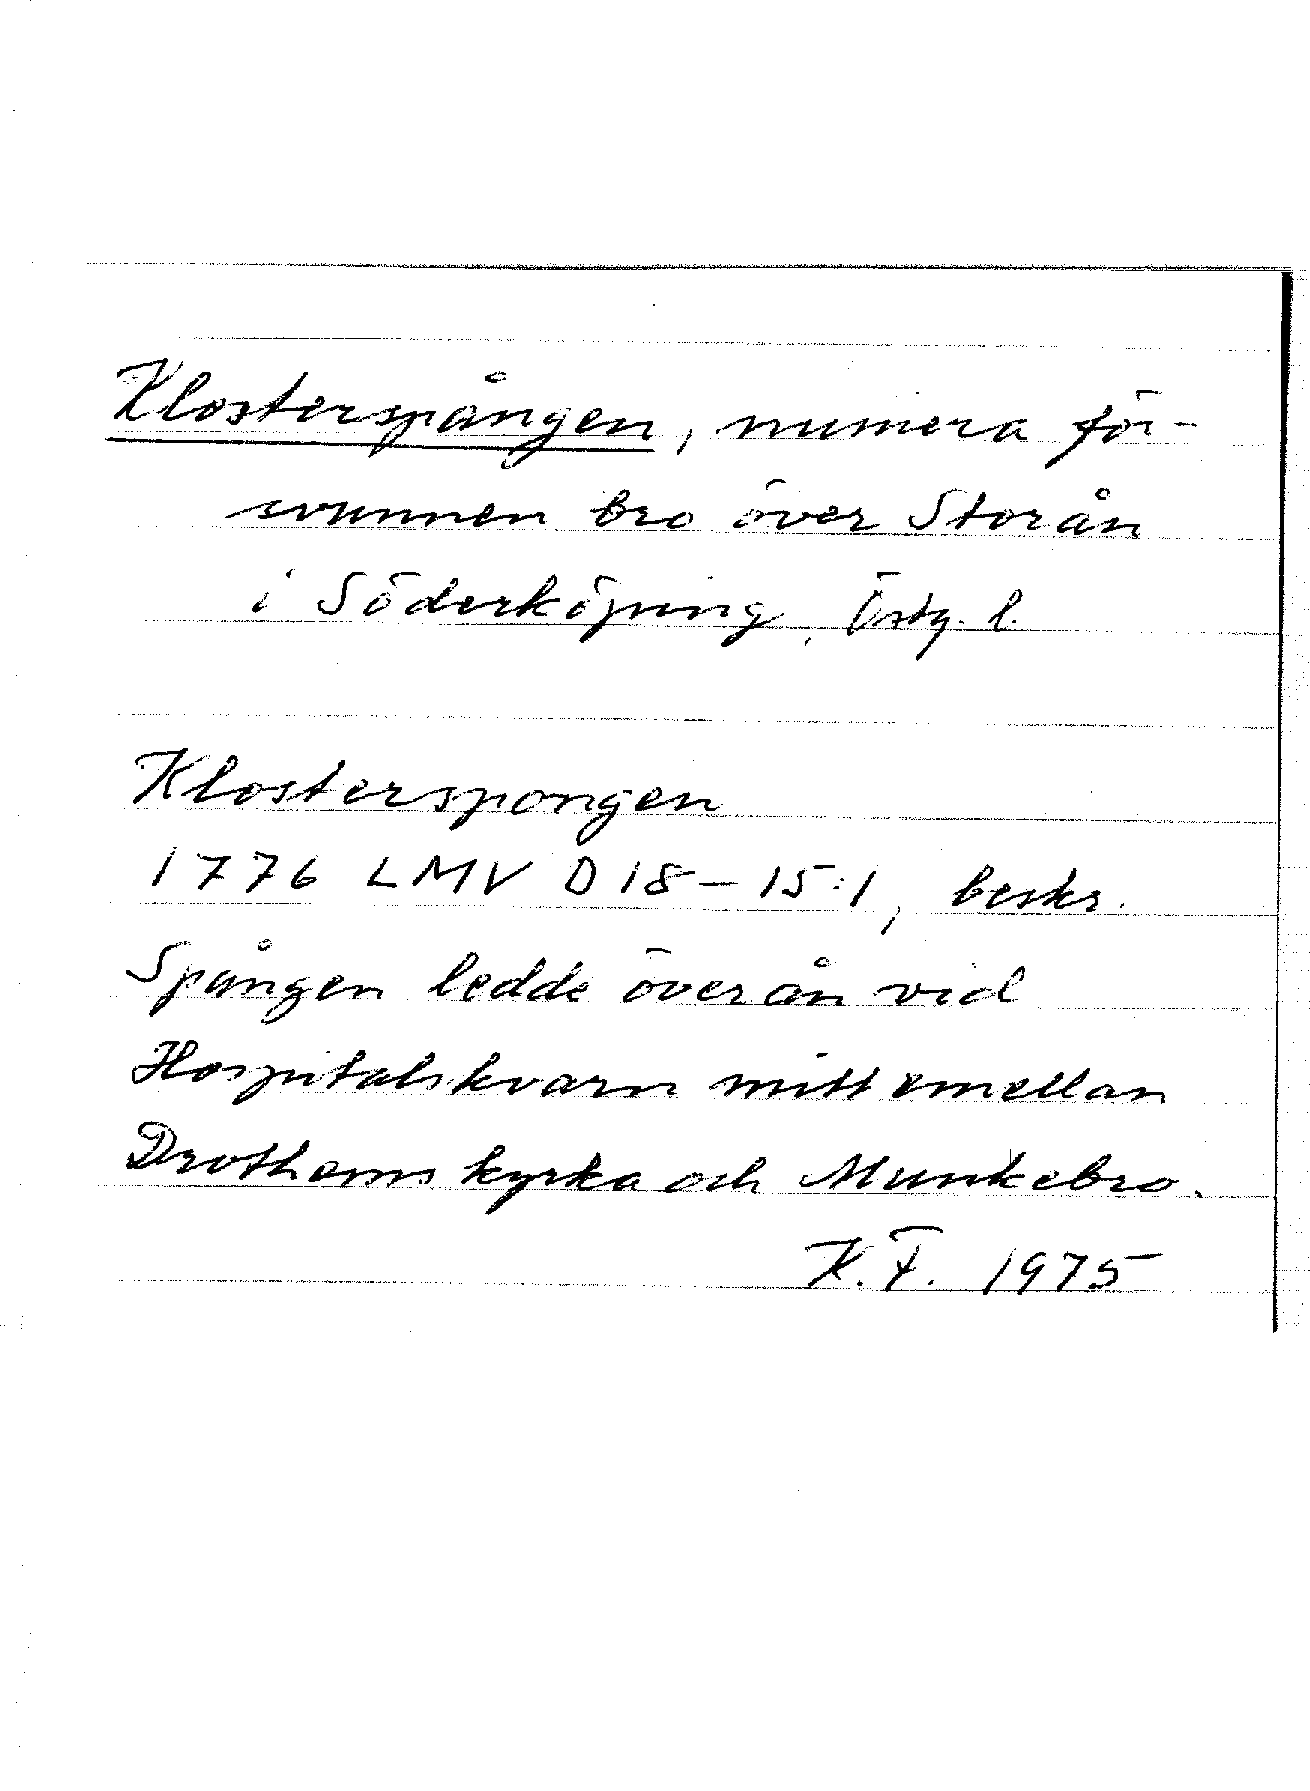 Klosterspången, numera för-
svunnen bro över Storån
i Söderköping, Östg. l.
Klosterspongen
1776 LMV D 18-15:1, beskr.
Spången ledde över ån vid
Hospitalskvarn mitt emellan
Drothems kyrka och Munkebro.
K.F. 1975